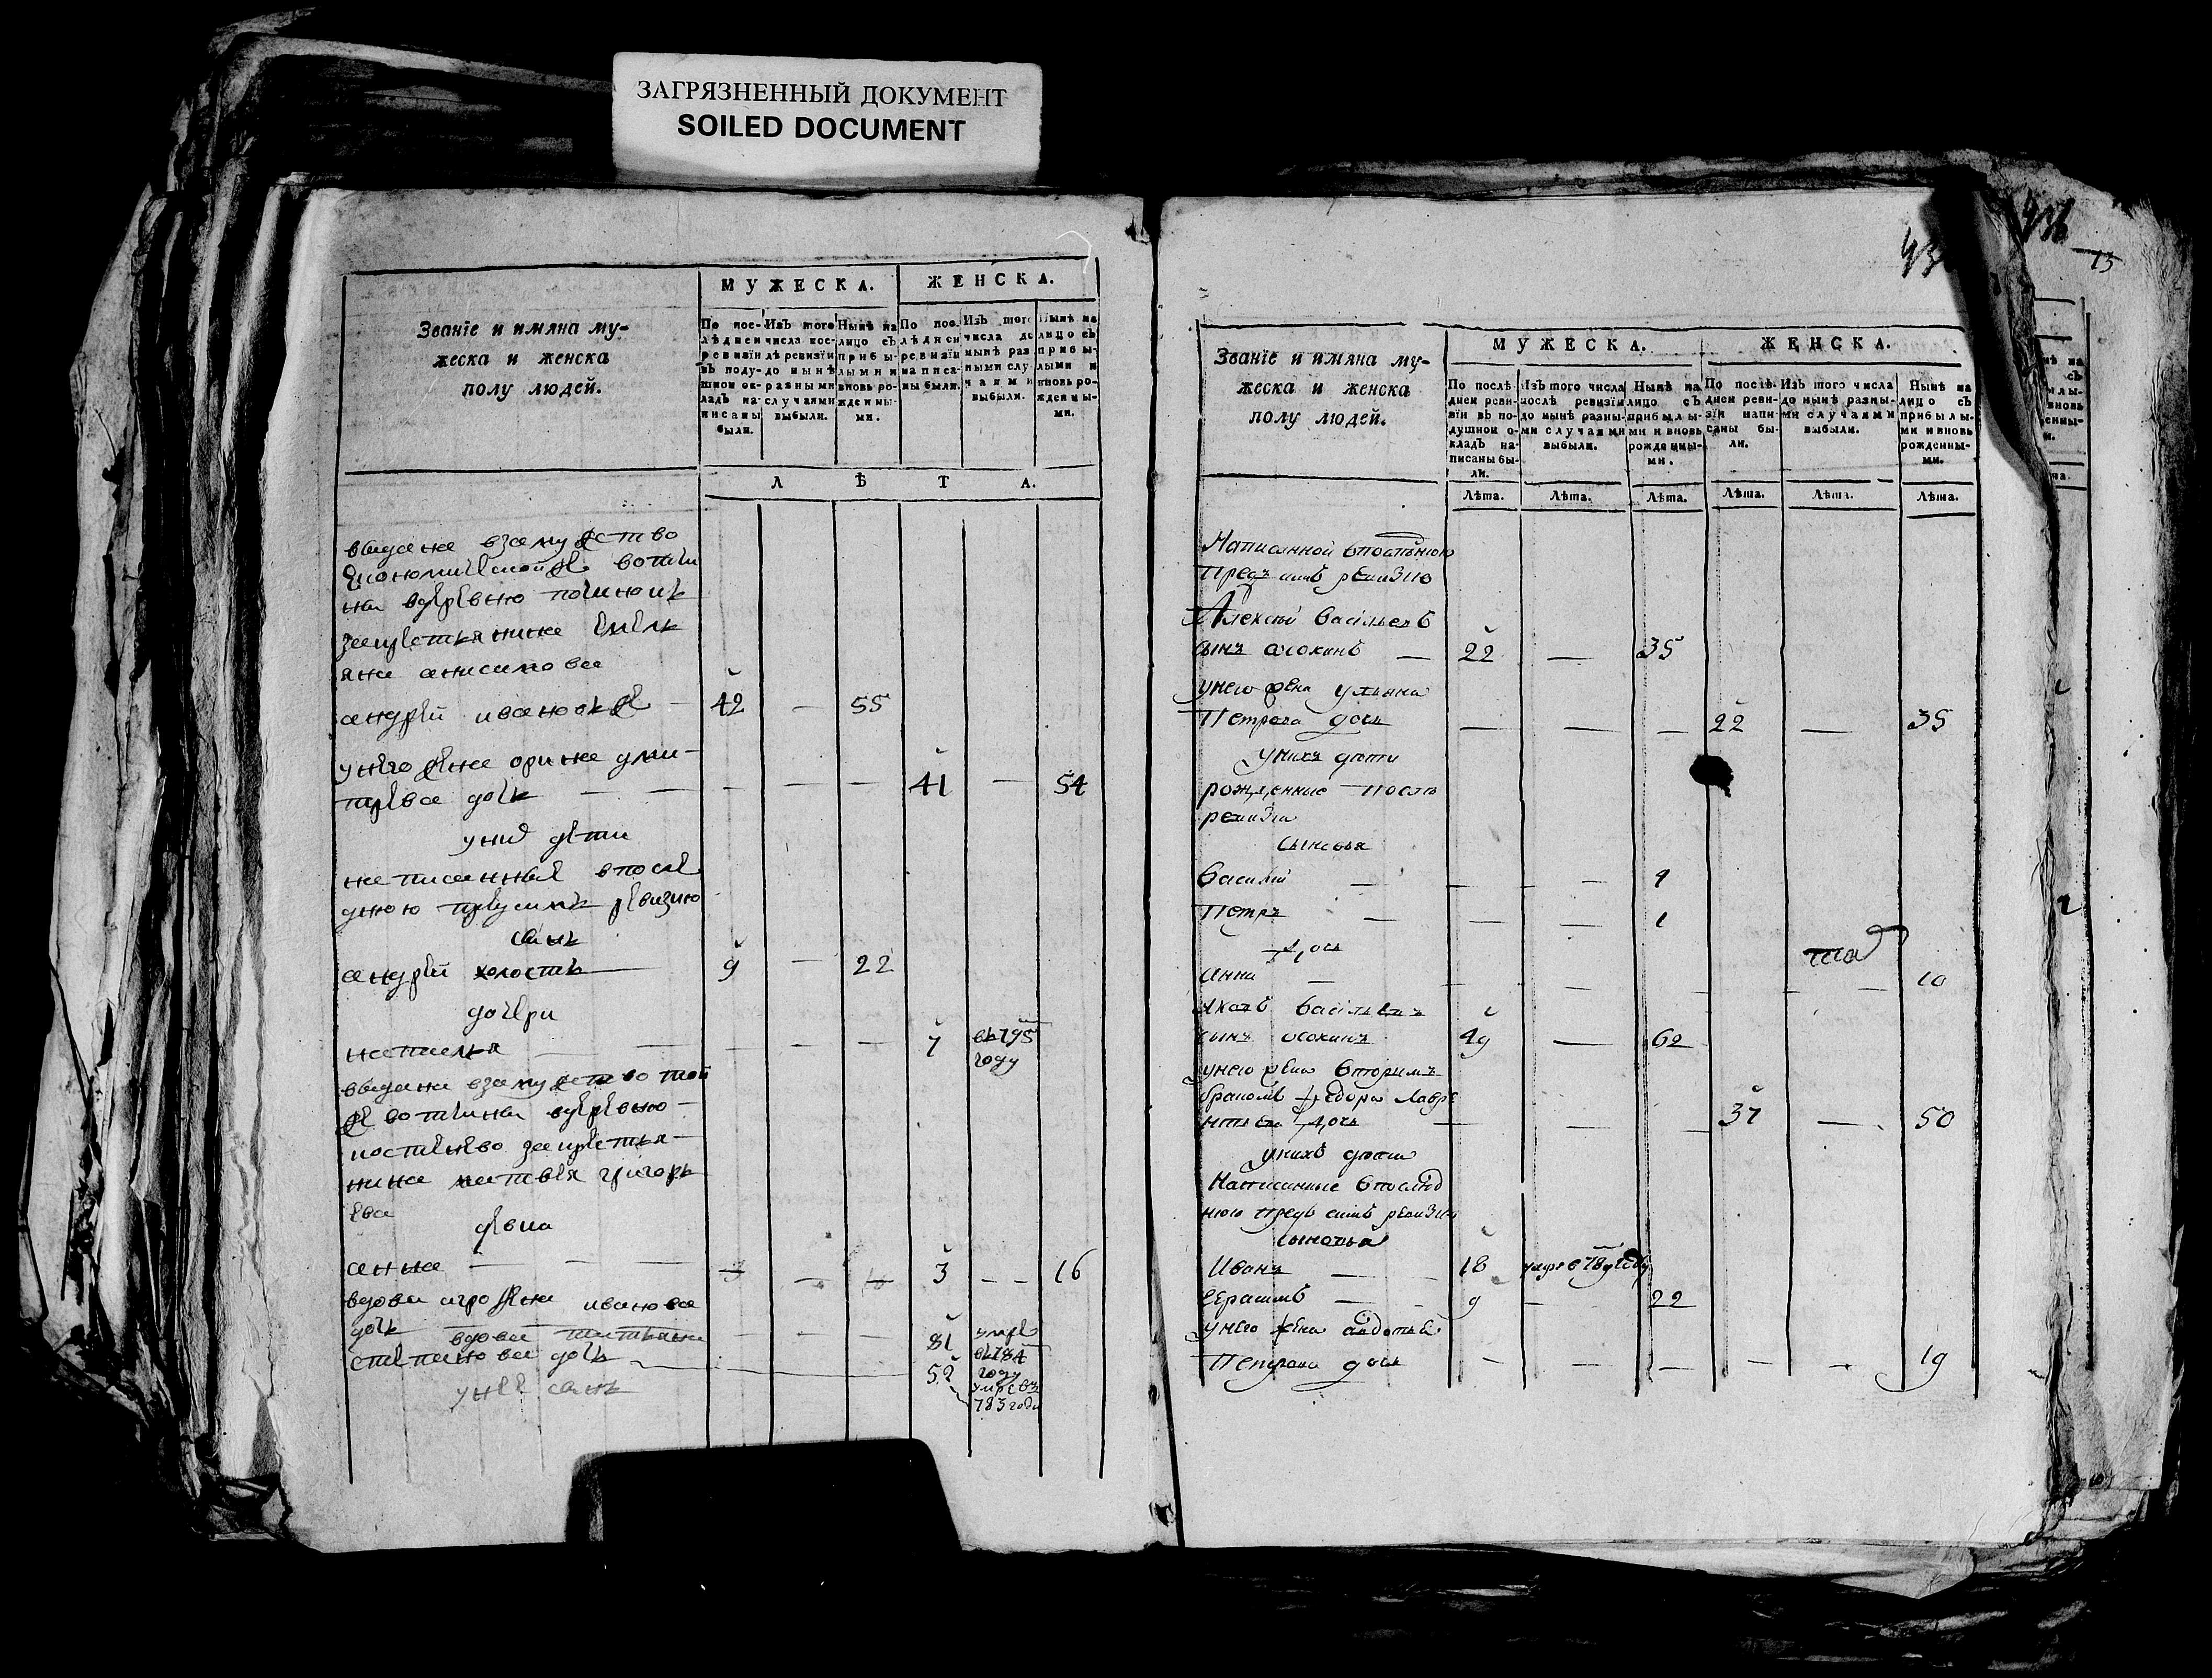 ЗАГРЯЗНЕННЫЙ ДОКУМЕНТ
SOILED DOCUMENT
Званїе и имяна му-
жеска и женска
полу людей.
МУЖЕСКА.
ЖЕНСКА.
По пос-
лѣдней
ревизїи
въ поду-
шной ок-
ладъ на-
писаны
были.
Изъ того
числа пос-
лѣ ревизїи
до нынѣ
разными
случаями
выбыли.
Нынѣ на
лицо съ
прибы-
лыми и
вновь ро-
жденны-
ми.
По пос-
лѣдней
ревизїи
написа-
ны были.
Изъ того
числа до
нынѣ раз
ными слу-
чаями
выбыли.
Нынѣ на
лицо съ
прибы-
лыми и
вновь ро-
жденны-
ми.
ЛѢТА.
выдана взамужство
вотчи
ны вдеревню
закрестьянина емель
яна анисимова
андрей 42 — 55
унего жена орина дми-
трева дочь — — — — — 41 — 54
уних дети
написанныя впосле
днюю предсимъ ревизию
сынъ
андрей холостъ 9 — 22
дочери
наталья — — — — — 7 въ 795
году
выдана взамужство той
ж вотчины вдеревню
закрестья-
нина матвея григорь
ева
девка
анна — — — — — 3 — — 16
вдова иванова
дочь — — — 81 умре
въ 784
году
вдова татьяна
дочь 52 умре въ
783 году
унее сынъ
43
Званїе и имяна му-
жеска и женска
полу людей.
МУЖЕСКА.
ЖЕНСКА.
По послѣ-
дней реви-
зїи въ по-
душной о-
кладъ на-
писаны бы-
ли.
Изъ того числа
послѣ ревизїи
до нынѣ разны-
ми случаями
выбыли.
Нынѣ на
лицо съ
прибылы-
ми и вновь
рожденны-
ми.
По послѣ-
дней реви-
зїи напи-
саны бы-
ли.
Изъ того числа
до нынѣ разны-
ми случаями
выбыли.
Нынѣ на
лицо съ
прибылы-
ми и вновь
рожденны-
ми.
Лѣта. Лѣта. Лѣта. Лѣта. Лѣта. Лѣта.
Написанной
предъ симъ ревизию
Алексей Васильевъ
сынъ осокинъ — 22 — 35
унего жена ульяна
Петрова дочь — — — 22 — 35
унихъ дети
рожденные послѣ
ревизии
сыновья
Василий — — — 4
Петръ — — — 1
дочь
Анна — — — — — 10
Яковъ Васильевъ
сынъ осокинъ 49 — 62
унего жена вторымъ
бракомъ Федора Лавре
нтьева дочь — — — 37 — 50
унихъ дети
Написанные впослед
нюю предъ симъ ревизию
сыновья
Иванъ — — 18
Герасимъ — — 9 — 22
унего жена авдотья
Петрова дочь — — — — — 19